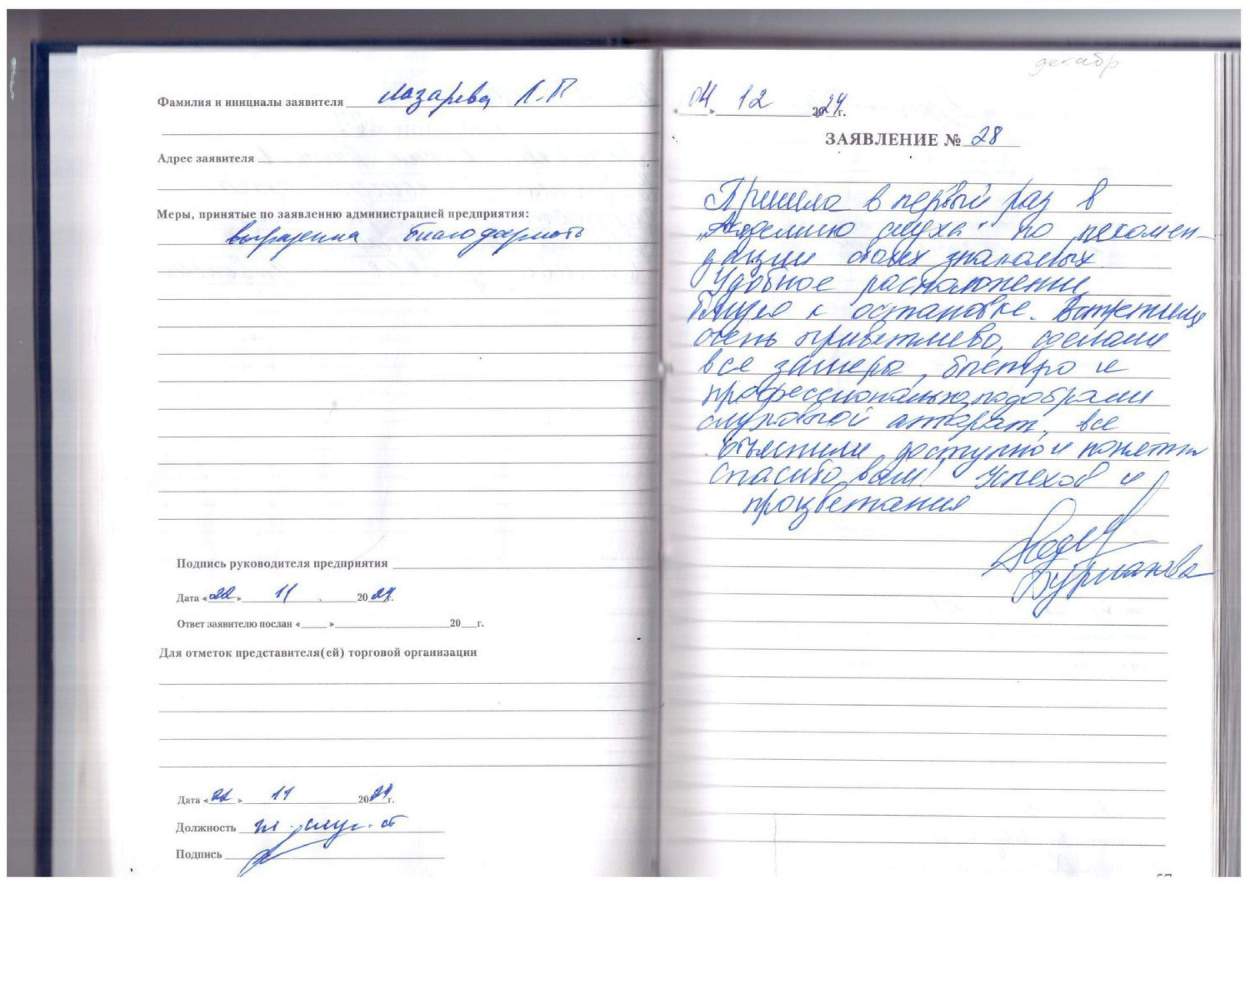 Фамилия и инициалы заявителя Лазарева Л.П
Адрес заявителя
Меры, принятые по заявлению администрацией предприятия:
выражена благодарность
Подпись руководителя предприятия
Дата «22» 11 2024г.
Ответ заявителю послан «  » 20 г.
Для отметок представителя(ей) торговой организации
Дата «22» 11 2024г.
Должность
Подпись
декабр
04 12 2024г.
ЗАЯВЛЕНИЕ № 28
Пришла в первый раз в
"Академию слуха" по рекомен-
дации своих знакомых.
Удобное расположение
близко к остановке. Встретили
очень приветливо, сделали
все замеры, быстро и
профессионально подобрали
слуховой аппарат, все
объяснили доступно и понятно
Спасибо вам! Успехов и
процветания